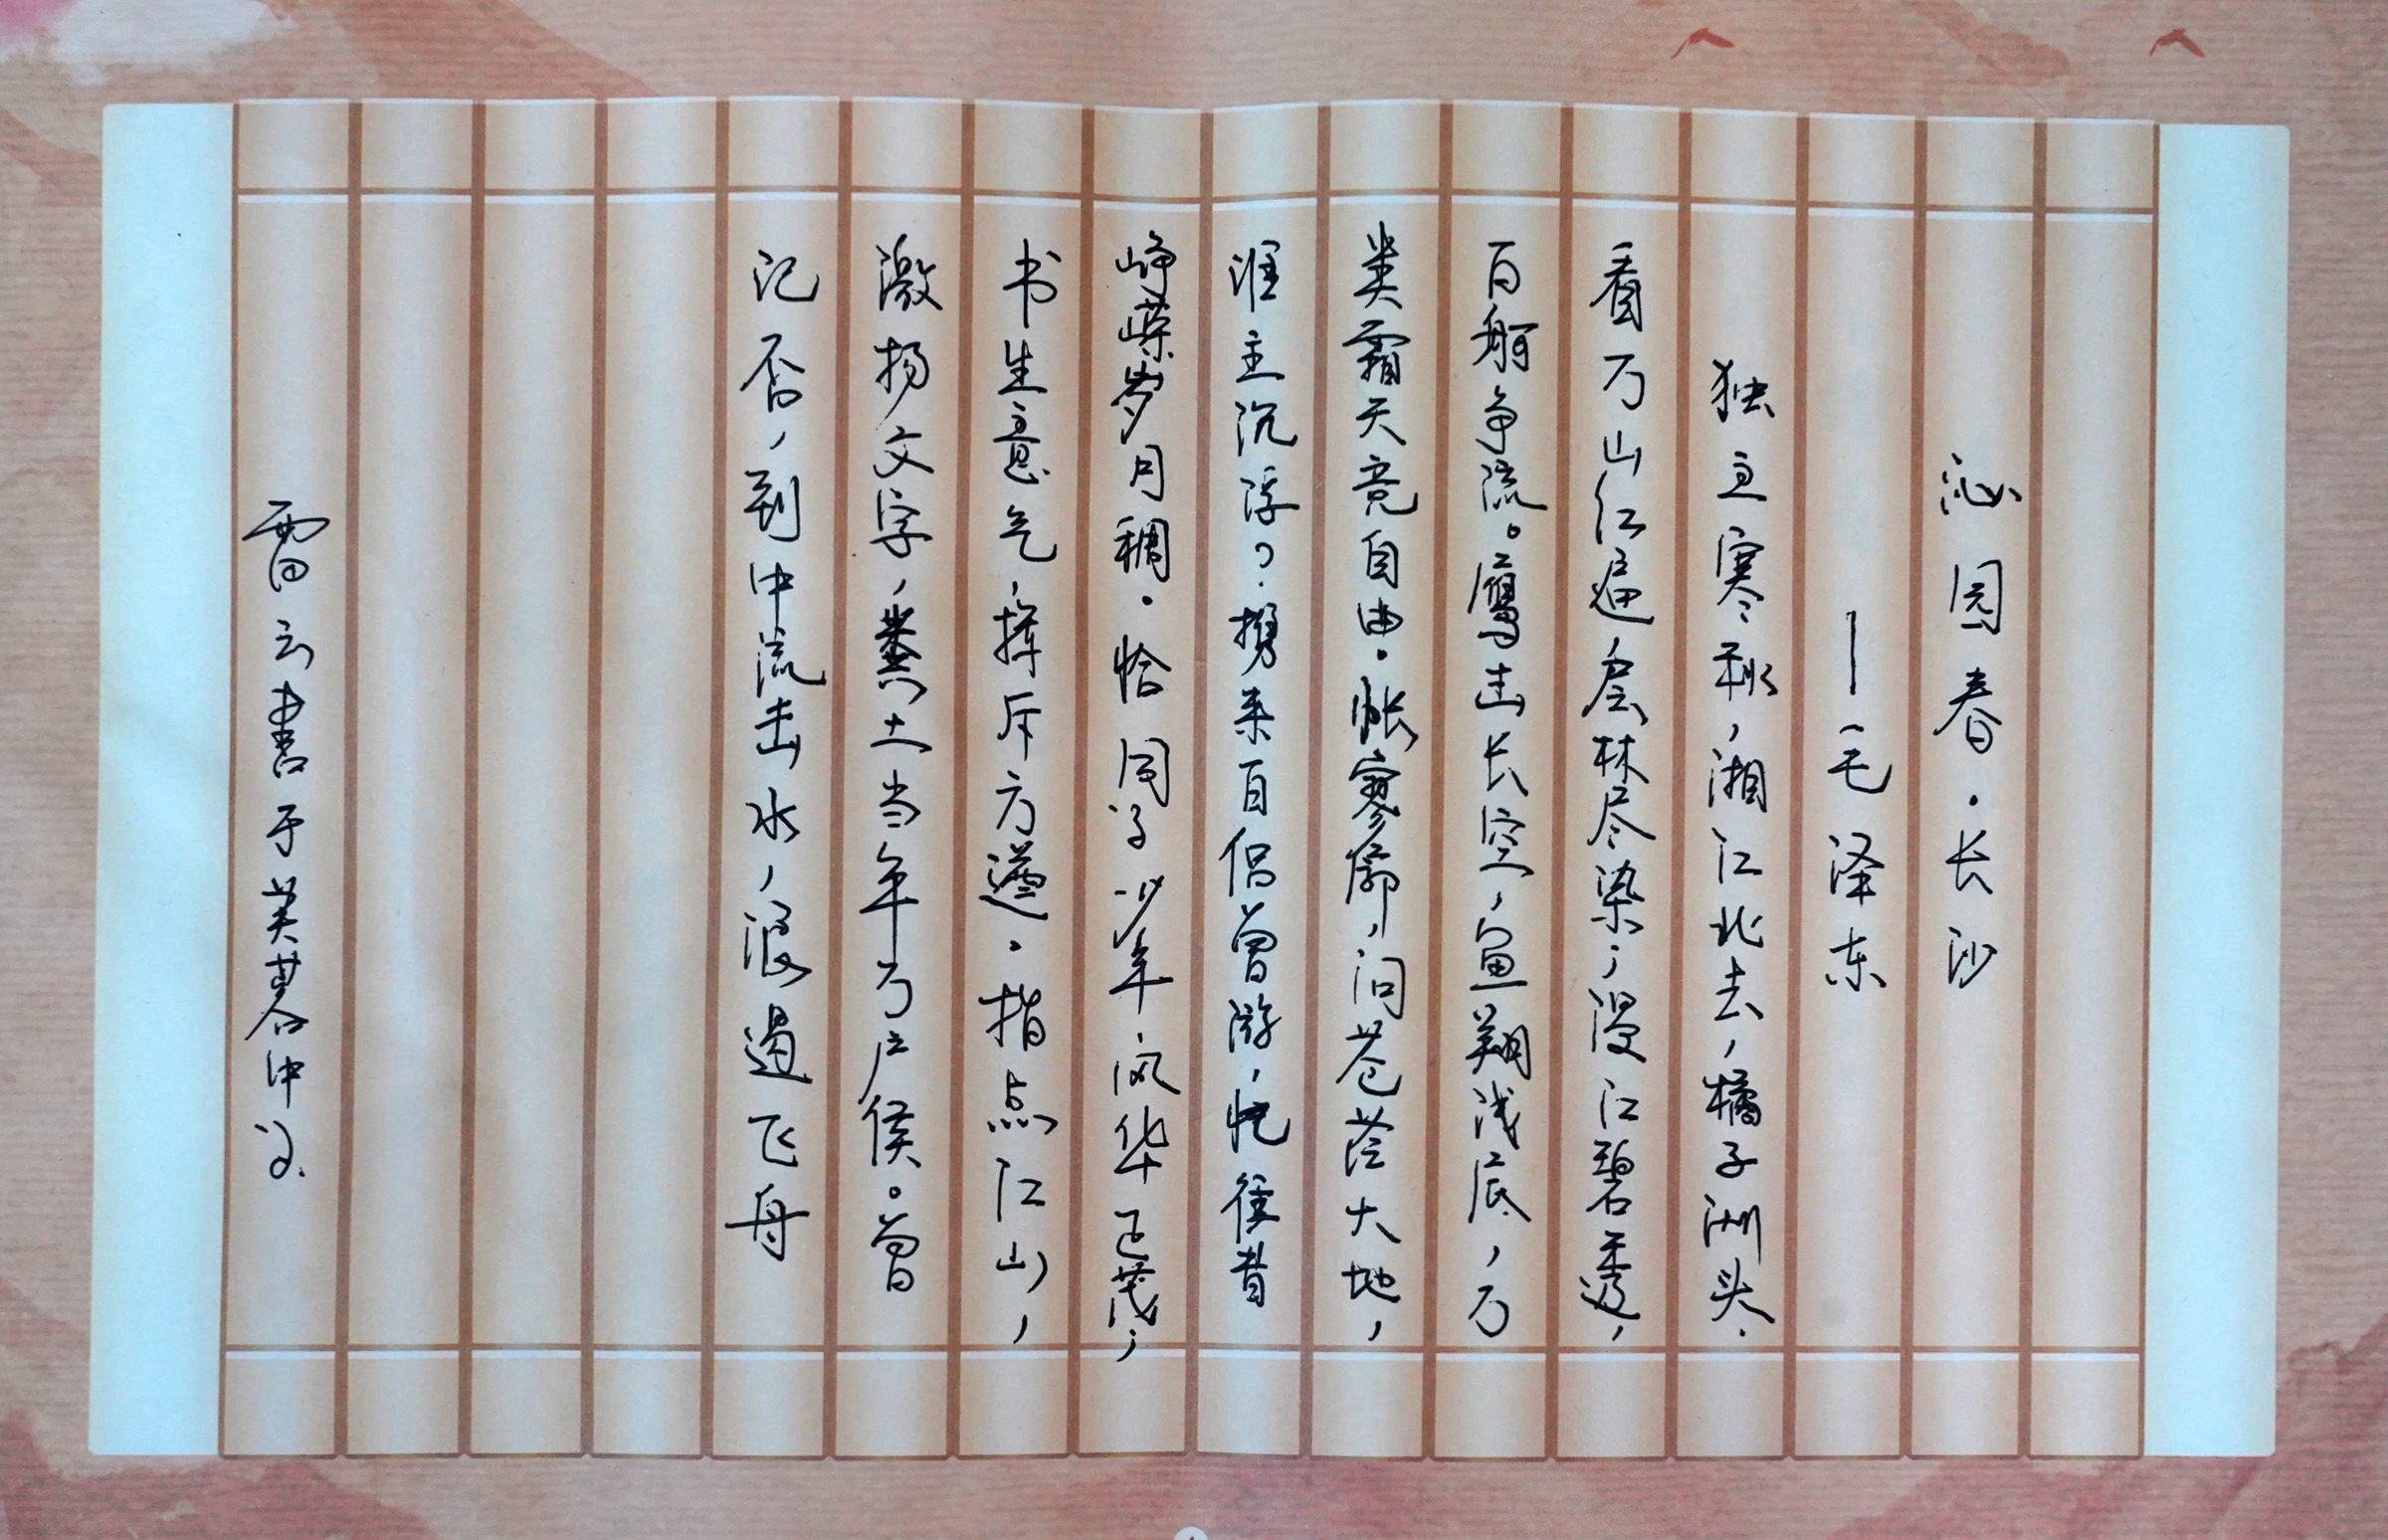 沁园春·长沙
——毛泽东
独立寒秋，湘江北去，橘子洲头.
看万山红遍层林尽染；漫江碧透，
百舸争流。鹰击长空，鱼翔浅底，万
类霜天竞自由.怅寥廓，问苍茫大地，
谁主沉浮？携来百侣曾游，忆往昔
峥嵘岁月稠.恰同学少年.风华正茂；
书生意气，挥斥方遒.指点江山，
激扬文字，粪土当年万户侯。曾
记否，到中流击水，浪遏飞舟
雷云書于芙蓉中